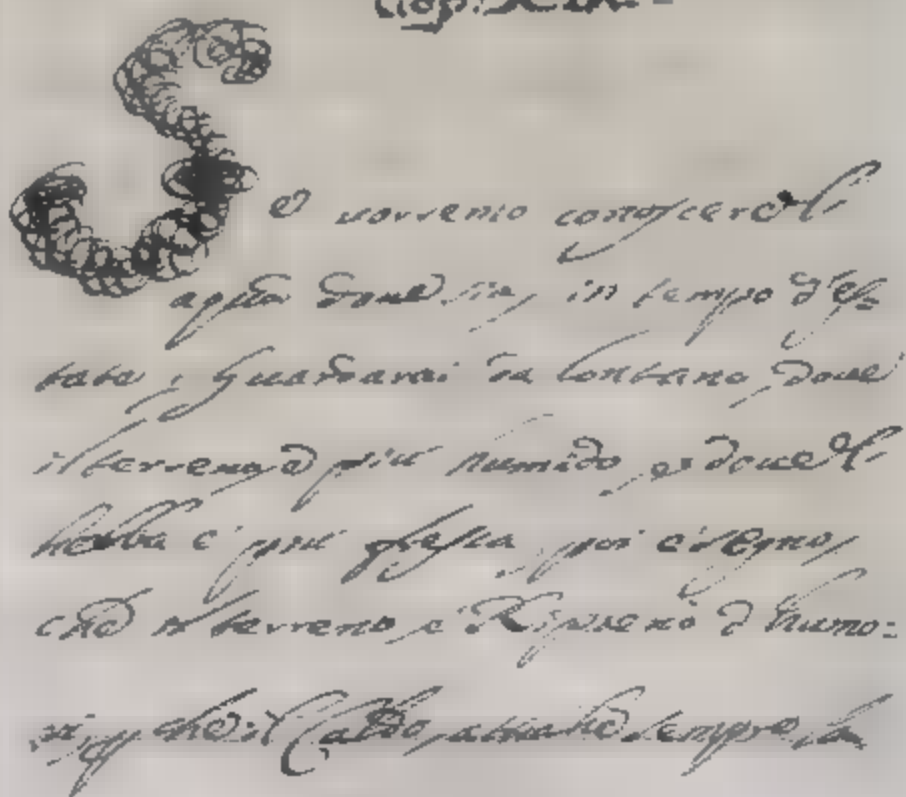 Se vorremo conoscere li
doue sia, in tempo d'es-
tate, Guardarai da lontano, doue
il terreno è più humido, et doue l'
herba è più spessa, poi è segno,
che il terreno, è Ripieno d'humo:
ri, che il Caldo, sempre,